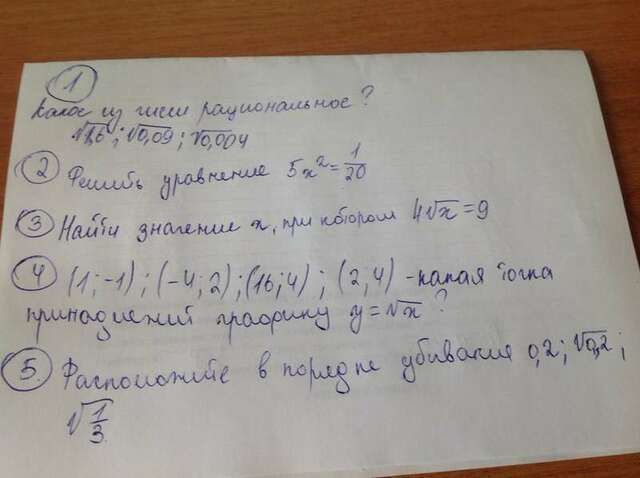 1
Какое из чисел рациональное?
√1,6 ; √0,09 ; √0,004
2 Решить уравнение 5x² = 1/20
3 Найти значение x, при котором 4√x = 9
4 (1; -1) ; (-4; 2) ; (16; 4) ; (2, 4) - какая точка
принадлежит графику y = √x ?
5. Расположите в порядке убывания 0,2 ; √0,2 ;
√1/3